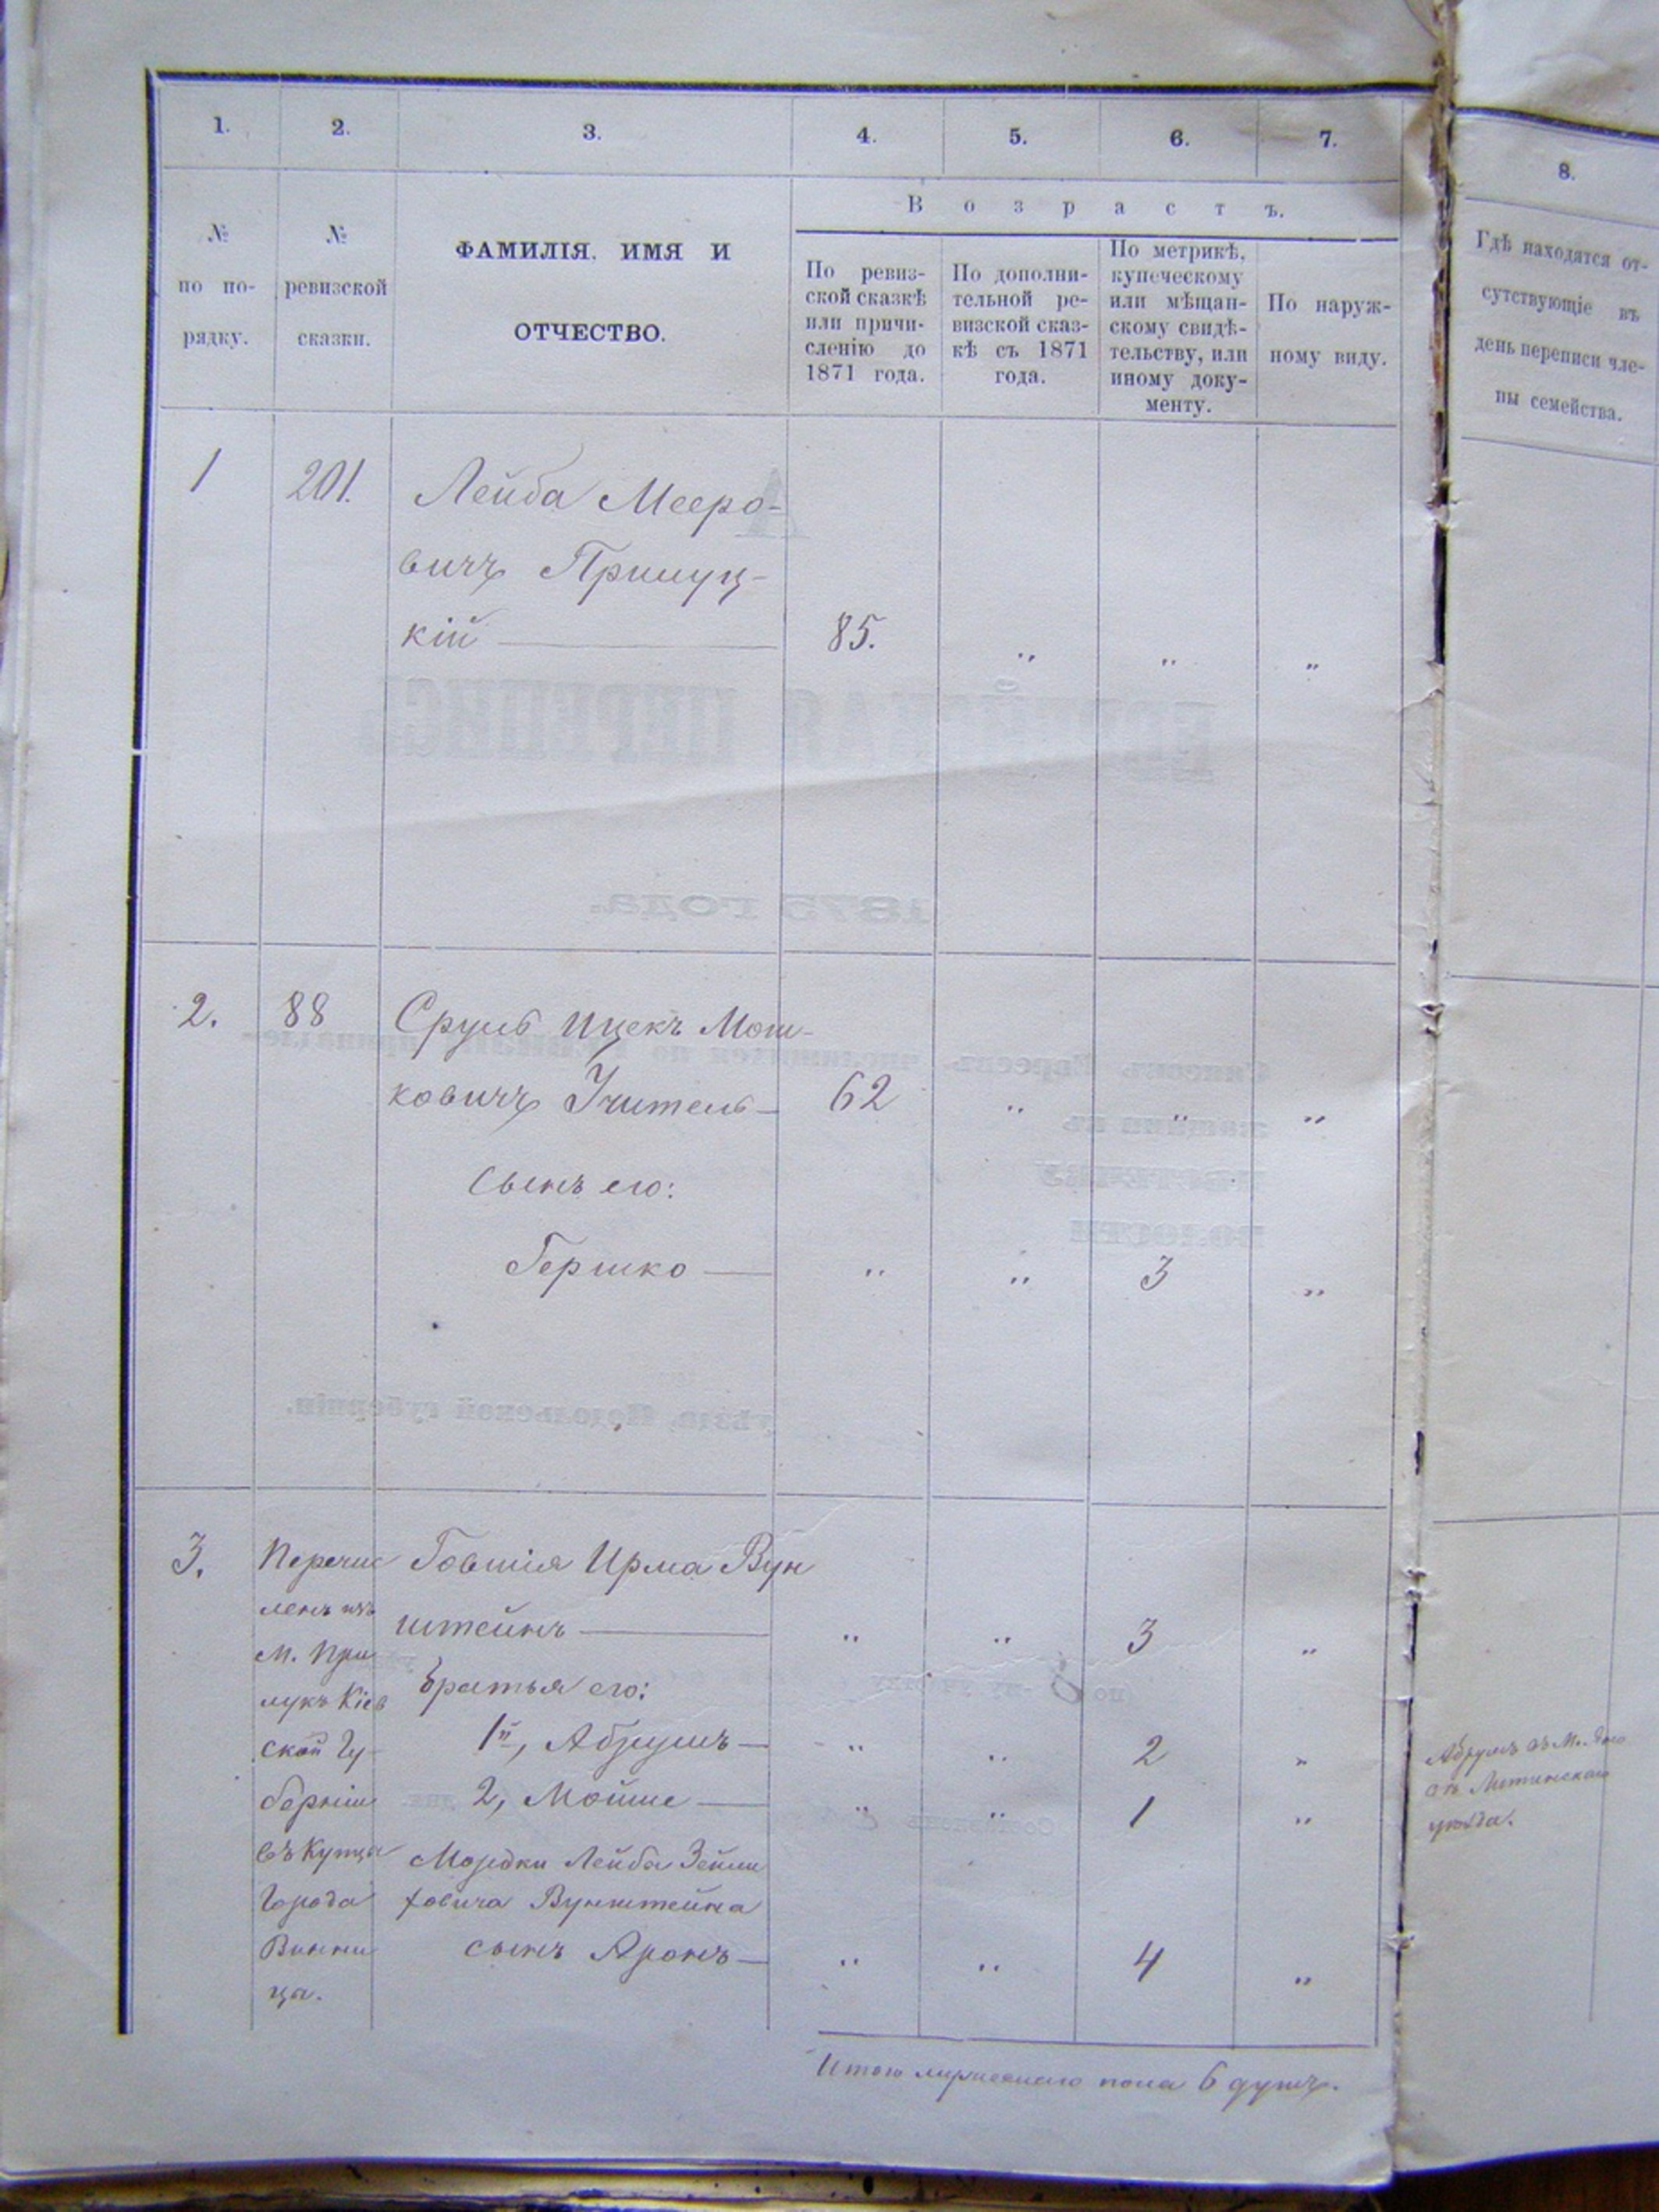 1.
2.
3.
4.
5.
6.
7.
8.
№
по по-
рядку.
№
ревизской
сказки.
ФАМИЛІЯ. ИМЯ И
ОТЧЕСТВО.
Возрастъ.
По ревиз-
ской сказкѣ
или причи-
сленію до
1871 года.
По дополни-
тельной ре-
визской сказ-
кѣ съ 1871
года.
По метрикѣ,
купеческому
или мѣщан-
скому свидѣ-
тельству, или
иному доку-
менту.
По наруж-
ному виду.
Гдѣ находятся от-
сутствующіе въ
день переписи чле-
ны семейства.
1 201. Лейба Мееро-
вичъ Прилуц-
кій 85. „ „ „
ЕВРЕЙСКАЯ ПЕРЕПИСЬ
1875 года.
2. 88 Сруль Ицекъ Мош-
ковичъ Учитель 62 „ „ „
Сынъ его:
Гершко „ „ 3 „
уѣзда, Подольской губерніи.
3.
Перечис
ленъ изъ
М. При
лукъ Кіев
ской Гу-
берніи
въ Купцы
Города
Винни
цы.
Говшія Ирма Вун
штейнъ „ „ 3 „
братья его:
1й, Абрумъ „ „ 2 „
2, Мойше „ „ 1 „
Мордки Лейба Зейли
ковича Вунштейна
сынъ Аронъ „ „ 4 „
Абрумъ въ М.
Литинскаго
уѣзда.
Итого мужескаго пола 6 душъ.